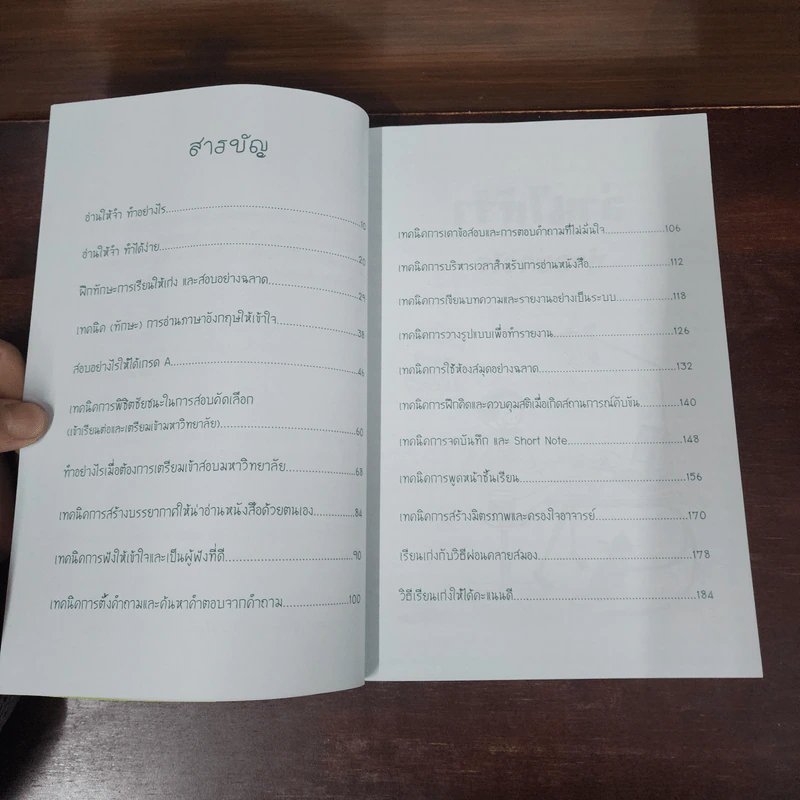 สารบัญ
อ่านให้จำ ทำอย่างไร.....10
อ่านให้จำ ทำได้ง่าย.....20
ฝึกทักษะการเรียนให้เก่ง และสอบอย่างฉลาด.....29
เทคนิค (ทักษะ) การอ่านภาษาอังกฤษให้เข้าใจ.....38
สอบอย่างไรให้ได้เกรด A.....46
เทคนิคการพิชิตชัยชนะในการสอบคัดเลือก
(เข้าเรียนต่อและเตรียมเข้ามหาวิทยาลัย).....60
ทำอย่างไรเมื่อต้องการเตรียมเข้าสอบมหาวิทยาลัย.....68
เทคนิคการสร้างบรรยากาศให้น่าอ่านหนังสือด้วยตนเอง.....84
เทคนิคการฟังให้เข้าใจและเป็นผู้ฟังที่ดี.....90
เทคนิคการตั้งคำถามและค้นหาคำตอบจากคำถาม.....100
เทคนิคการเดาข้อสอบและการตอบคำถามที่ไม่มั่นใจ.....106
เทคนิคการบริหารเวลาสำหรับการอ่านหนังสือ.....112
เทคนิคการเขียนบทความและรายงานอย่างเป็นระบบ.....118
เทคนิคการวางรูปแบบเพื่อทำรายงาน.....126
เทคนิคการใช้ห้องสมุดอย่างฉลาด.....132
เทคนิคการฝึกคิดและควบคุมสติเมื่อเกิดสถานการณ์คับขัน.....140
เทคนิคการจดบันทึก และ Short Note.....148
เทคนิคการพูดหน้าชั้นเรียน.....156
เทคนิคการสร้างมิตรภาพและครองใจอาจารย์.....170
เรียนเก่งกับวิธีผ่อนคลายสมอง.....178
วิธีเรียนเก่งให้ได้คะแนนดี.....184